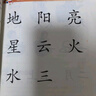 地 阳 亮
星 云 火
水 三 月